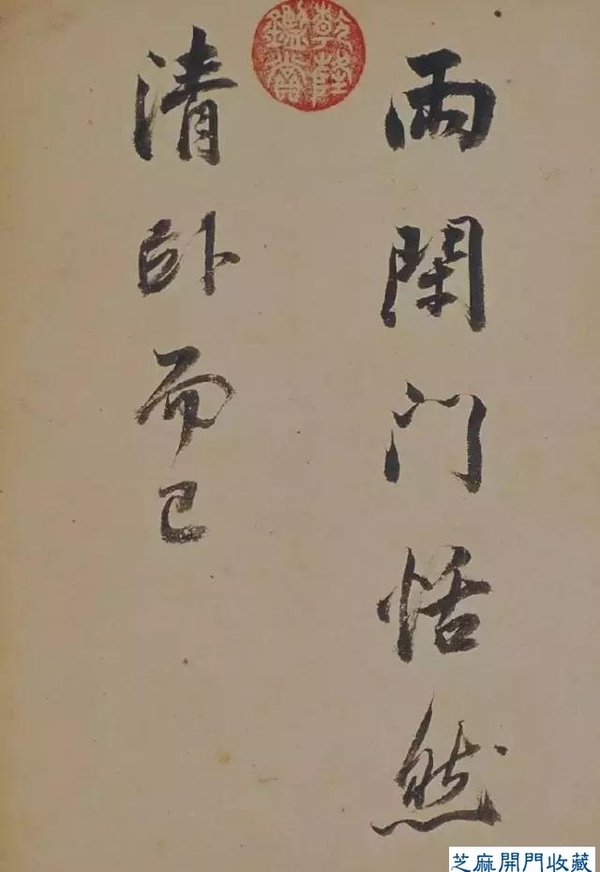 雨閑门恬然
清卧而已
乾隆鑑賞
芝麻開門收藏